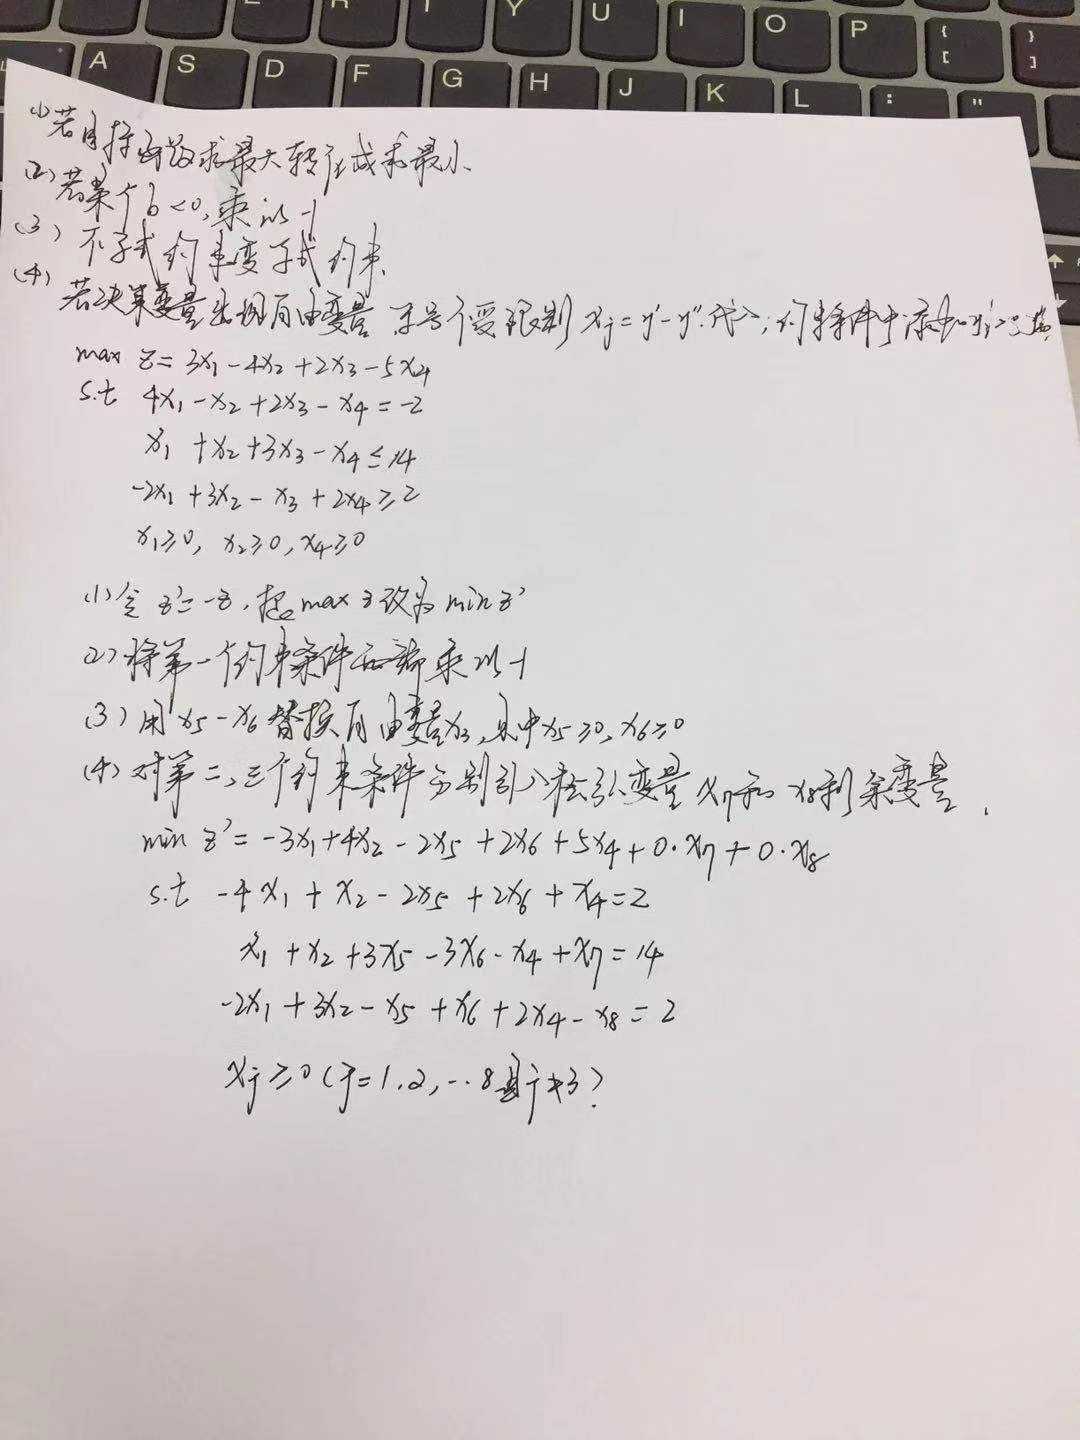 E R T Y U I O P { [ } ]
A S D F G H J K L : ; "
(1) 若目标函数求最大转化成求最小.
(2) 若某个b<0, 乘以-1
(3) 不等式约束变等式约束.
(4) 若决策变量出现自由变量 符号不受限制 xj = y'-y''.代入; 约束条件中添加
max z = 3x₁ - 4x₂ + 2x₃ - 5x₄
s.t 4x₁ - x₂ + 2x₃ - x₄ = -2
x₁ + x₂ + 3x₃ - x₄ ≤ 14
-2x₁ + 3x₂ - x₃ + 2x₄ ≥ 2
x₁≥0, x₂≥0, x₄≥0
(1) 令 z'=-z, 把max z改为 min z'
(2) 将第一个约束条件两端乘以-1
(3) 用x₅-x₆替换自由变量x₃, 其中x₅≥0, x₆≥0
(4) 对第二、三个约束条件分别引入松弛变量 x₇和 x₈剩余变量.
min z' = -3x₁ + 4x₂ - 2x₅ + 2x₆ + 5x₄ + 0·x₇ + 0·x₈
s.t -4x₁ + x₂ - 2x₅ + 2x₆ + x₄ = 2
x₁ + x₂ + 3x₅ - 3x₆ - x₄ + x₇ = 14
-2x₁ + 3x₂ - x₅ + x₆ + 2x₄ - x₈ = 2
xj ≥ 0 (j=1,2,…8 且j≠3)